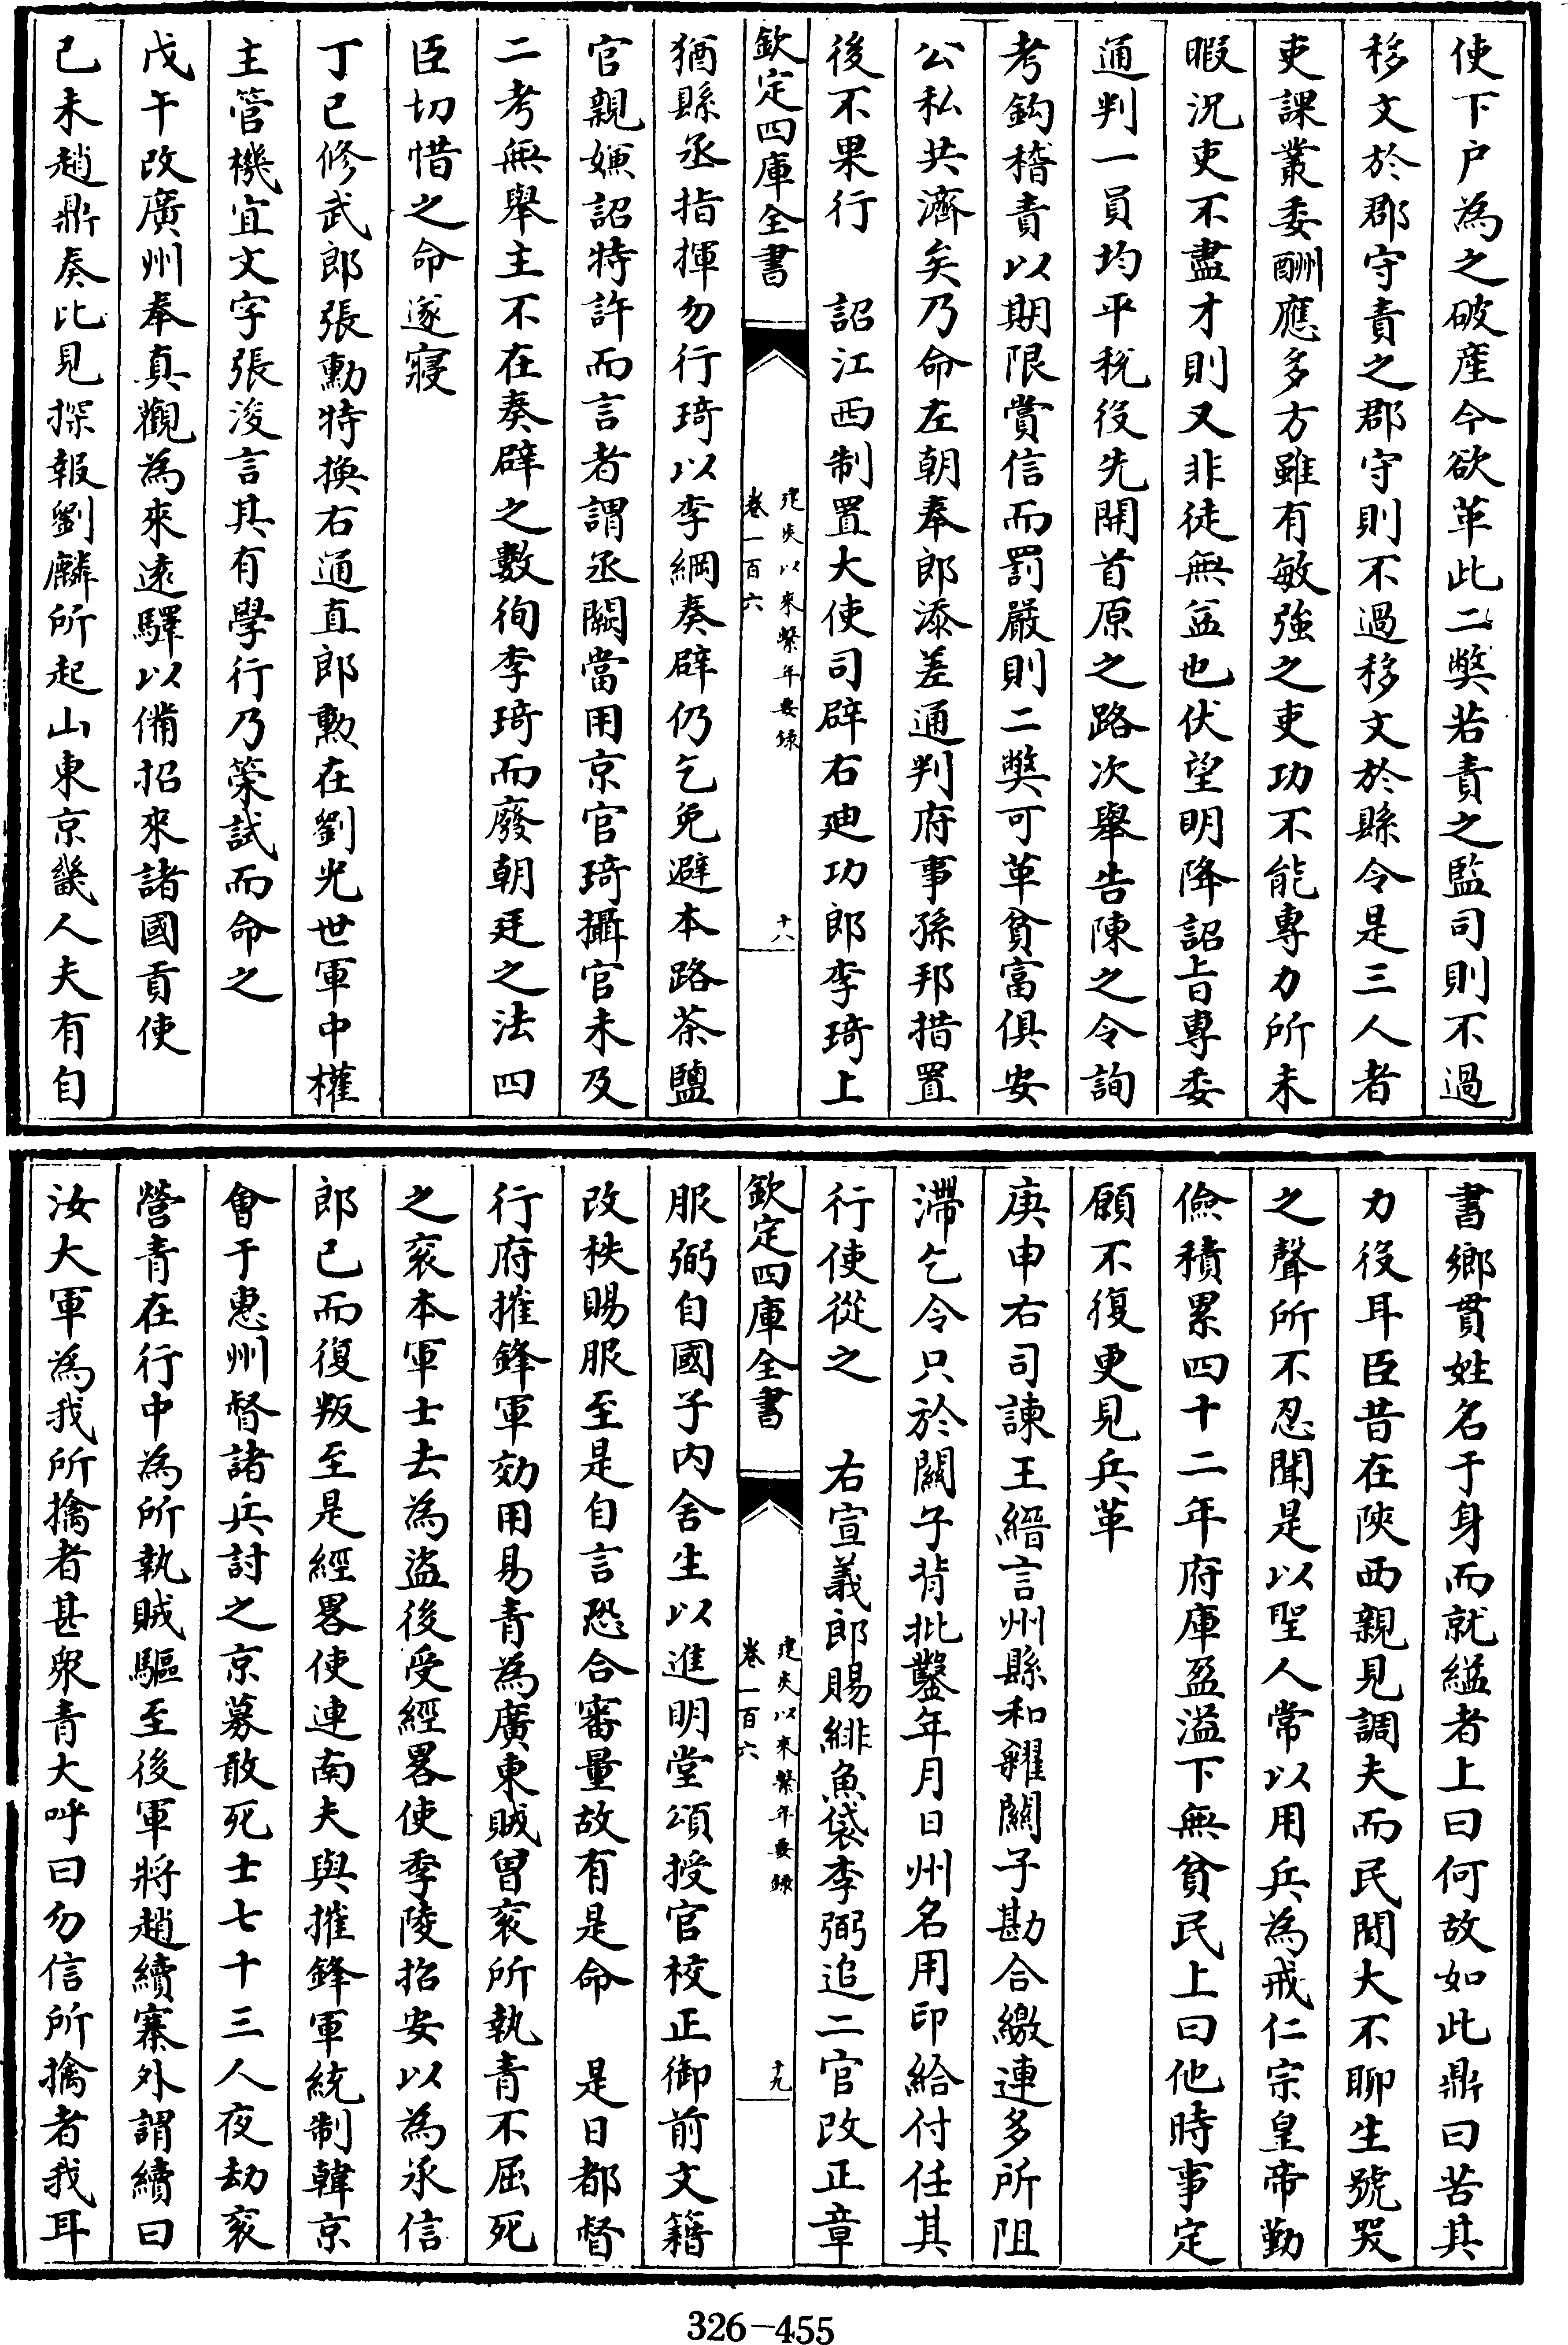 使下户為之破産今欲革此二獘若責之監司則不過
移文於郡守責之郡守則不過移文於縣令是三人者
吏課叢委酬應多方雖有敏強之吏功不能專力所未
暇況吏不盡才則又非徒無益也伏望明降詔旨專委
通判一員均平税役先開首原之路次舉告陳之令詢
考鈎稽責以期限賞信而罰嚴則二獘可革貧富俱安
公私共濟矣乃命左朝奉郎添差通判府事孫邦措置
後不果行　詔江西制置大使司辟右廸功郎李琦上
欽定四庫全書
建炎以來繫年要録
卷一百六
十八
猶縣丞指揮勿行琦以李綱奏辟仍乞免避本路茶鹽
官親嫌詔特許而言者謂丞闕當用京官琦攝官未及
二考無舉主不在奏辟之數徇李琦而廢朝廷之法四
臣切惜之命遂寢
丁已修武郎張勳特換右通直郎勳在劉光世軍中權
主管機宜文字張浚言其有學行乃策試而命之
戊午改廣州奉真觀為來遠驛以備招來諸國貢使
已未趙鼎奏比見探報劉麟所起山東京畿人夫有自
書鄉貫姓名于身而就縊者上曰何故如此鼎曰苦其
力役耳臣昔在陜西親見調夫而民間大不聊生號哭
之聲所不忍聞是以聖人常以用兵為戒仁宗皇帝勤
儉積累四十二年府庫盈溢下無貧民上曰他時事定
願不復更見兵革
庚申右司諫王縉言州縣和糴關子勘合繳連多所阻
滯乞令只於關子背批鑿年月日州名用印給付任其
行使從之　右宣義郎賜緋魚袋李弼追二官改正章
欽定四庫全書
建炎以來繫年要録
卷一百六
十九
服弼自國子内舍生以進明堂頌授官校正御前文籍
改秩賜服至是自言恐合審量故有是命　是日都督
行府摧鋒軍効用易青為廣東賊曾衮所執青不屈死
之衮本軍士去為盗後受經畧使季陵招安以為承信
郎已而復叛至是經畧使連南夫與摧鋒軍統制韓京
會于惠州督諸兵討之京募敢死士七十三人夜劫衮
營青在行中為所執賊驅至後軍將趙續寨外謂續曰
汝大軍為我所擒者甚衆青大呼曰勿信所擒者我耳
326-455